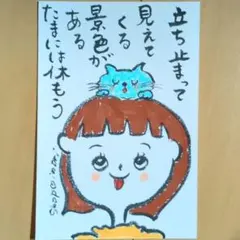 立ち止まって
見えて
くる
景色が
ある
たまには休もう